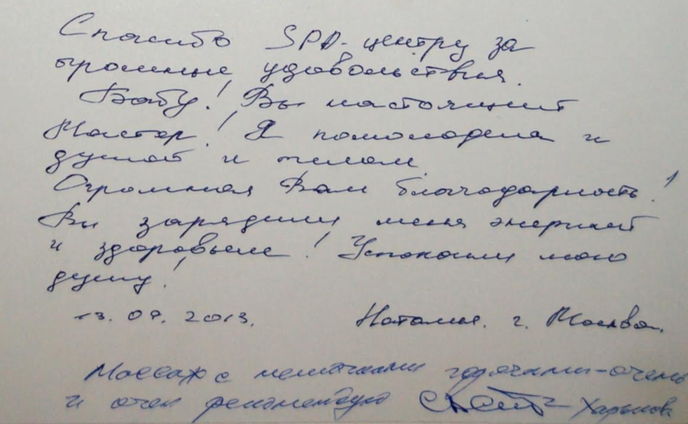 Спасибо SPA-центру за
огромные удовольствия.
Бабу! Вы настоящий
Мастер! Я помолодела и
душой и телом
Огромная Вам благодарность!
Вы зарядили меня энергией
и здоровьем! Успокоили мою
душу!
13.09.2013. Наталья. г. Москва.
Массаж с мешочками горячими-очень
и очен рекомендую Харьков